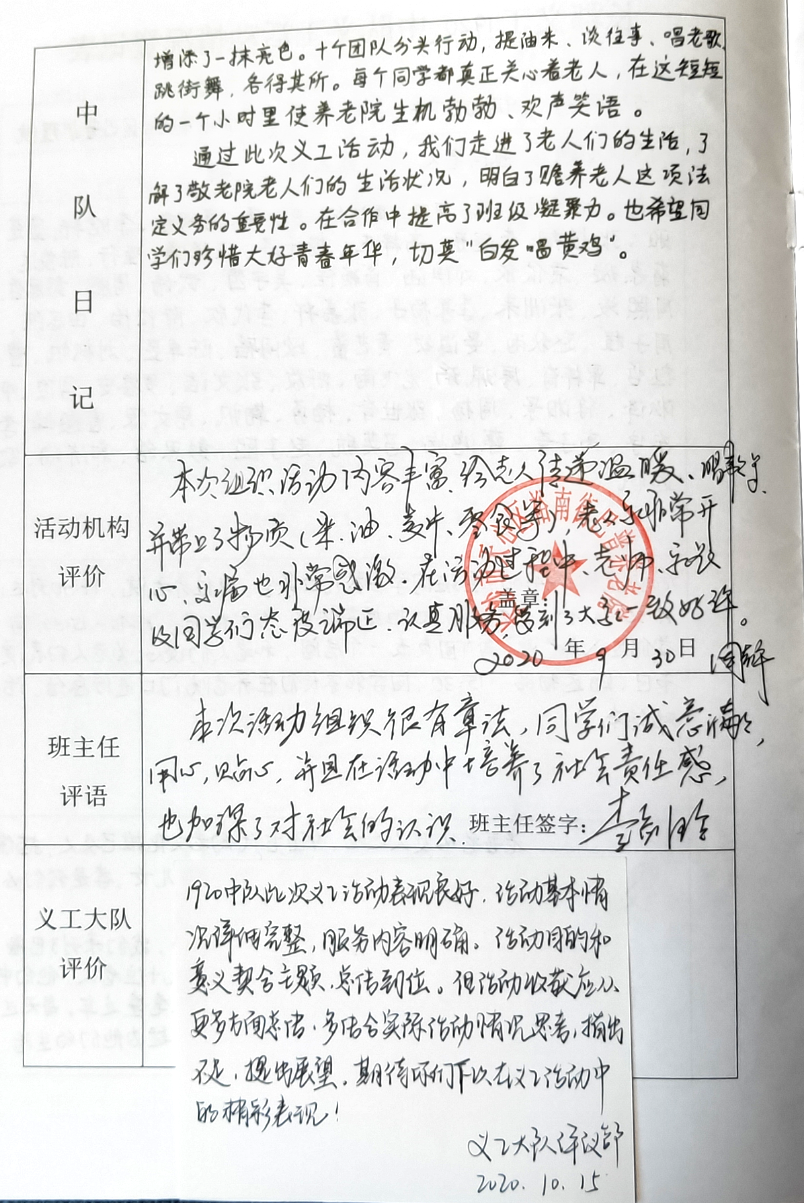 增添了一抹亮色。十个团队分头行动，提油米、谈往事、唱老歌、
跳街舞，各得其所。每个同学都真正关心着老人，在这短短
的一个小时里使养老院生机勃勃、欢声笑语。
通过此次义工活动，我们走进了老人们的生活，了
解了敬老院老人们的生活状况，明白了赡养老人这项法
定义务的重要性。在合作中提高了班级凝聚力。也希望同
学们珍惜大好青春年华，切莫“白发唱黄鸡”。
中
队
日
记
活动机构
评价
本次组织活动内容丰富，给老人传递温暖、
并带上了物质（米、油、麦片、零食等），老人们非常开
心，家属也非常感激。在活动过程中，老师、家长
及同学们态度端正、认真服务，受到了大家一致好评。
盖章：
2020 年 9 月 30 日
班主任
评语
本次活动组织很有章法，同学们诚意满满，
用心，贴心，并且在活动中培养了社会责任感，
也加深了对社会的认识。 班主任签字：
义工大队
评价
1920中队此次义工活动表现良好，活动基本情
况详细完整，服务内容明确。活动目的和
意义契合主题，总结到位。但活动收获应从
更多方面总结，多结合实际活动情况思考，指出
不足，提出展望。期待你们下次在义工活动中
的精彩表现！
义工大队评议部
2020.10.15